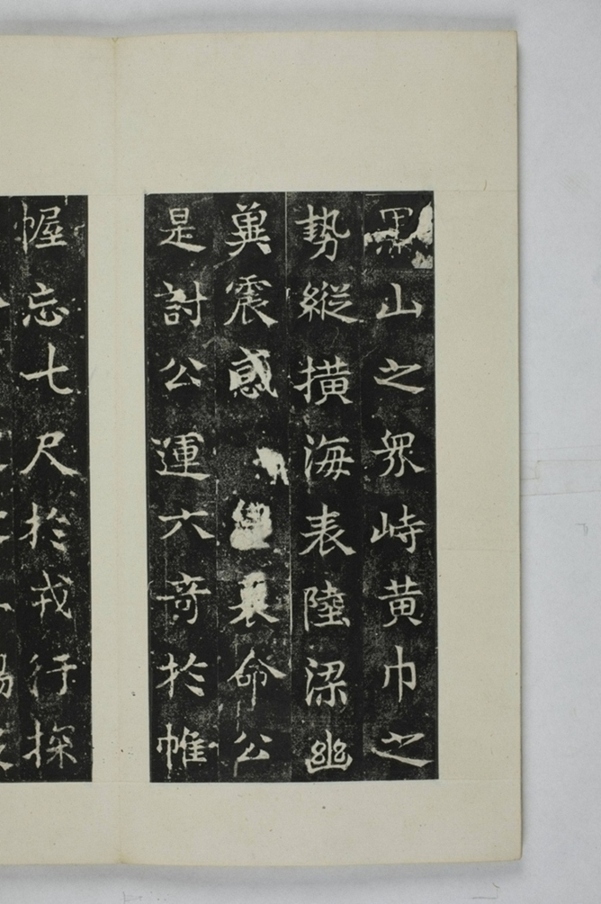 黑山之眾峙黄巾之
勢縱横海表陸梁幽
冀震惑命公
是討公運六奇於帷
幄忘七尺於戎行探